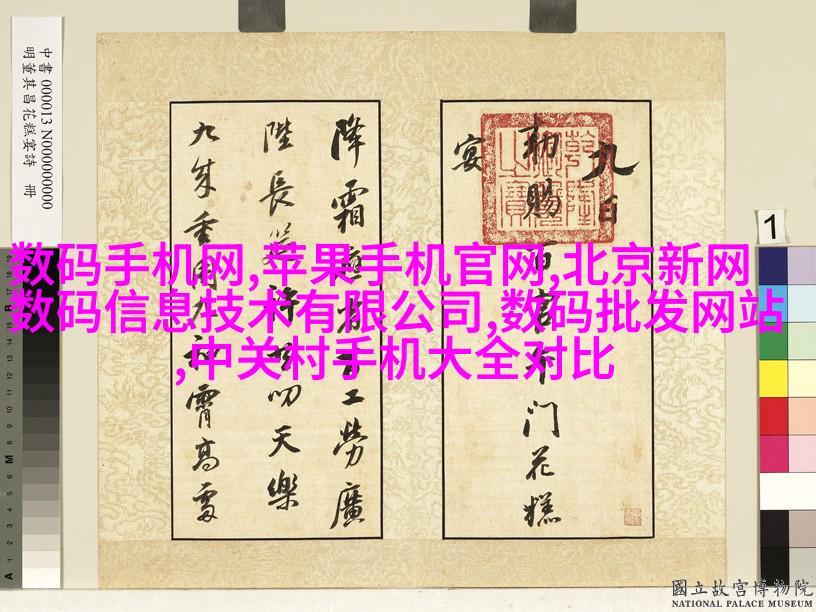 中書 000013 N000000000
明董其昌花糕宴詩 冊
九日
勅賜百官午門花糕
宴
降霜 工勞廣
陛長筵許 叨天樂
九成重 霄高
1
数码手机网,苹果手机官网,北京新网
数码信息技术有限公司,数码批发网站
,中关村手机大全对比
國立故宮博物院
NATIONAL PALACE MUSEUM